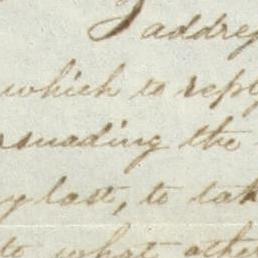 I addres
which to reply
rsuading the
y last, to tak
to what othe